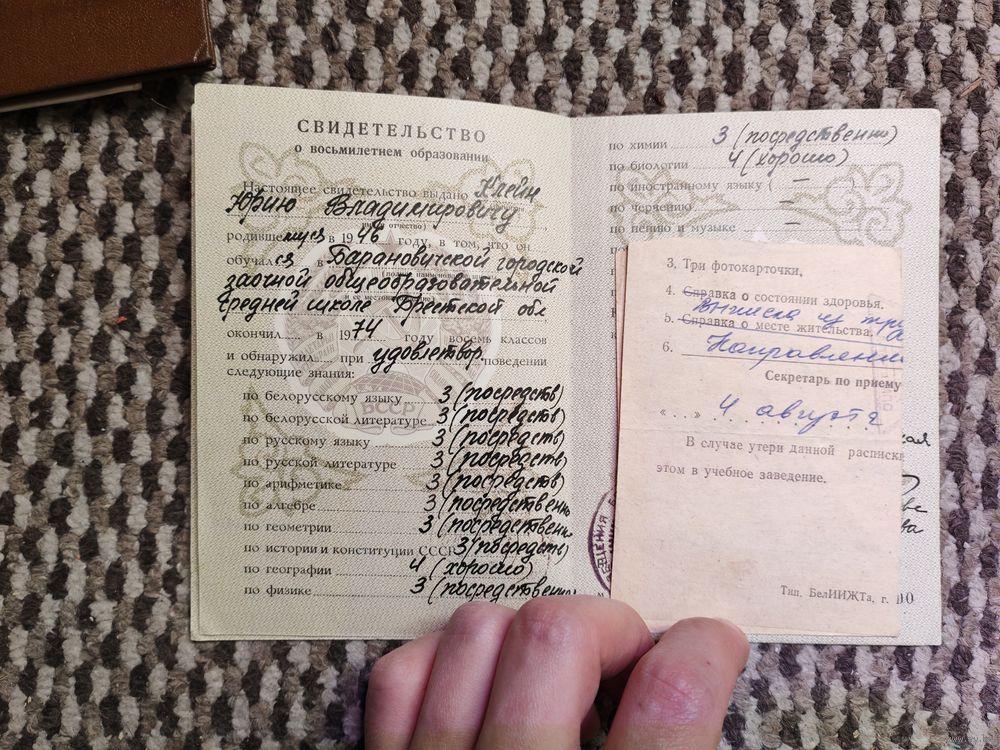 СВИДЕТЕЛЬСТВО
о восьмилетнем образовании
Настоящее свидетельство выдано Клейн
Юрию Владимировичу
родивше муся в 1946 году, в том, что он
обучался в Барановичской городской
заочной общеобразовательной
средней школе Брестской обл
окончил в 1974 году восемь классов
и обнаружил при удовлетвор. поведении
следующие знания:
по белорусскому языку 3 (посредств)
по белорусской литературе 3 (посредств)
по русскому языку 3 (посредств)
по русской литературе 3 (посредств)
по арифметике 3 (посредств)
по алгебре 3 (посредственн
по геометрии 3 (посредственн
по истории и конституции СССР 3 (посредств)
по географии 4 (хорошо)
по физике 3 (посредственно
БССР
по химии 3 (посредственно)
по биологии 4 (хорошо)
по иностранному языку ( — )
по черчению —
по пению и музыке —
3. Три фотокарточки,
4. Справка о состоянии здоровья,
Выписка из тру
5. Справка о месте жительства,
6. Направлени
Секретарь по приему
«...» 4 августа
В случае утери данной расписк
этом в учебное заведение.
Тип. БелИИЖТа, г.